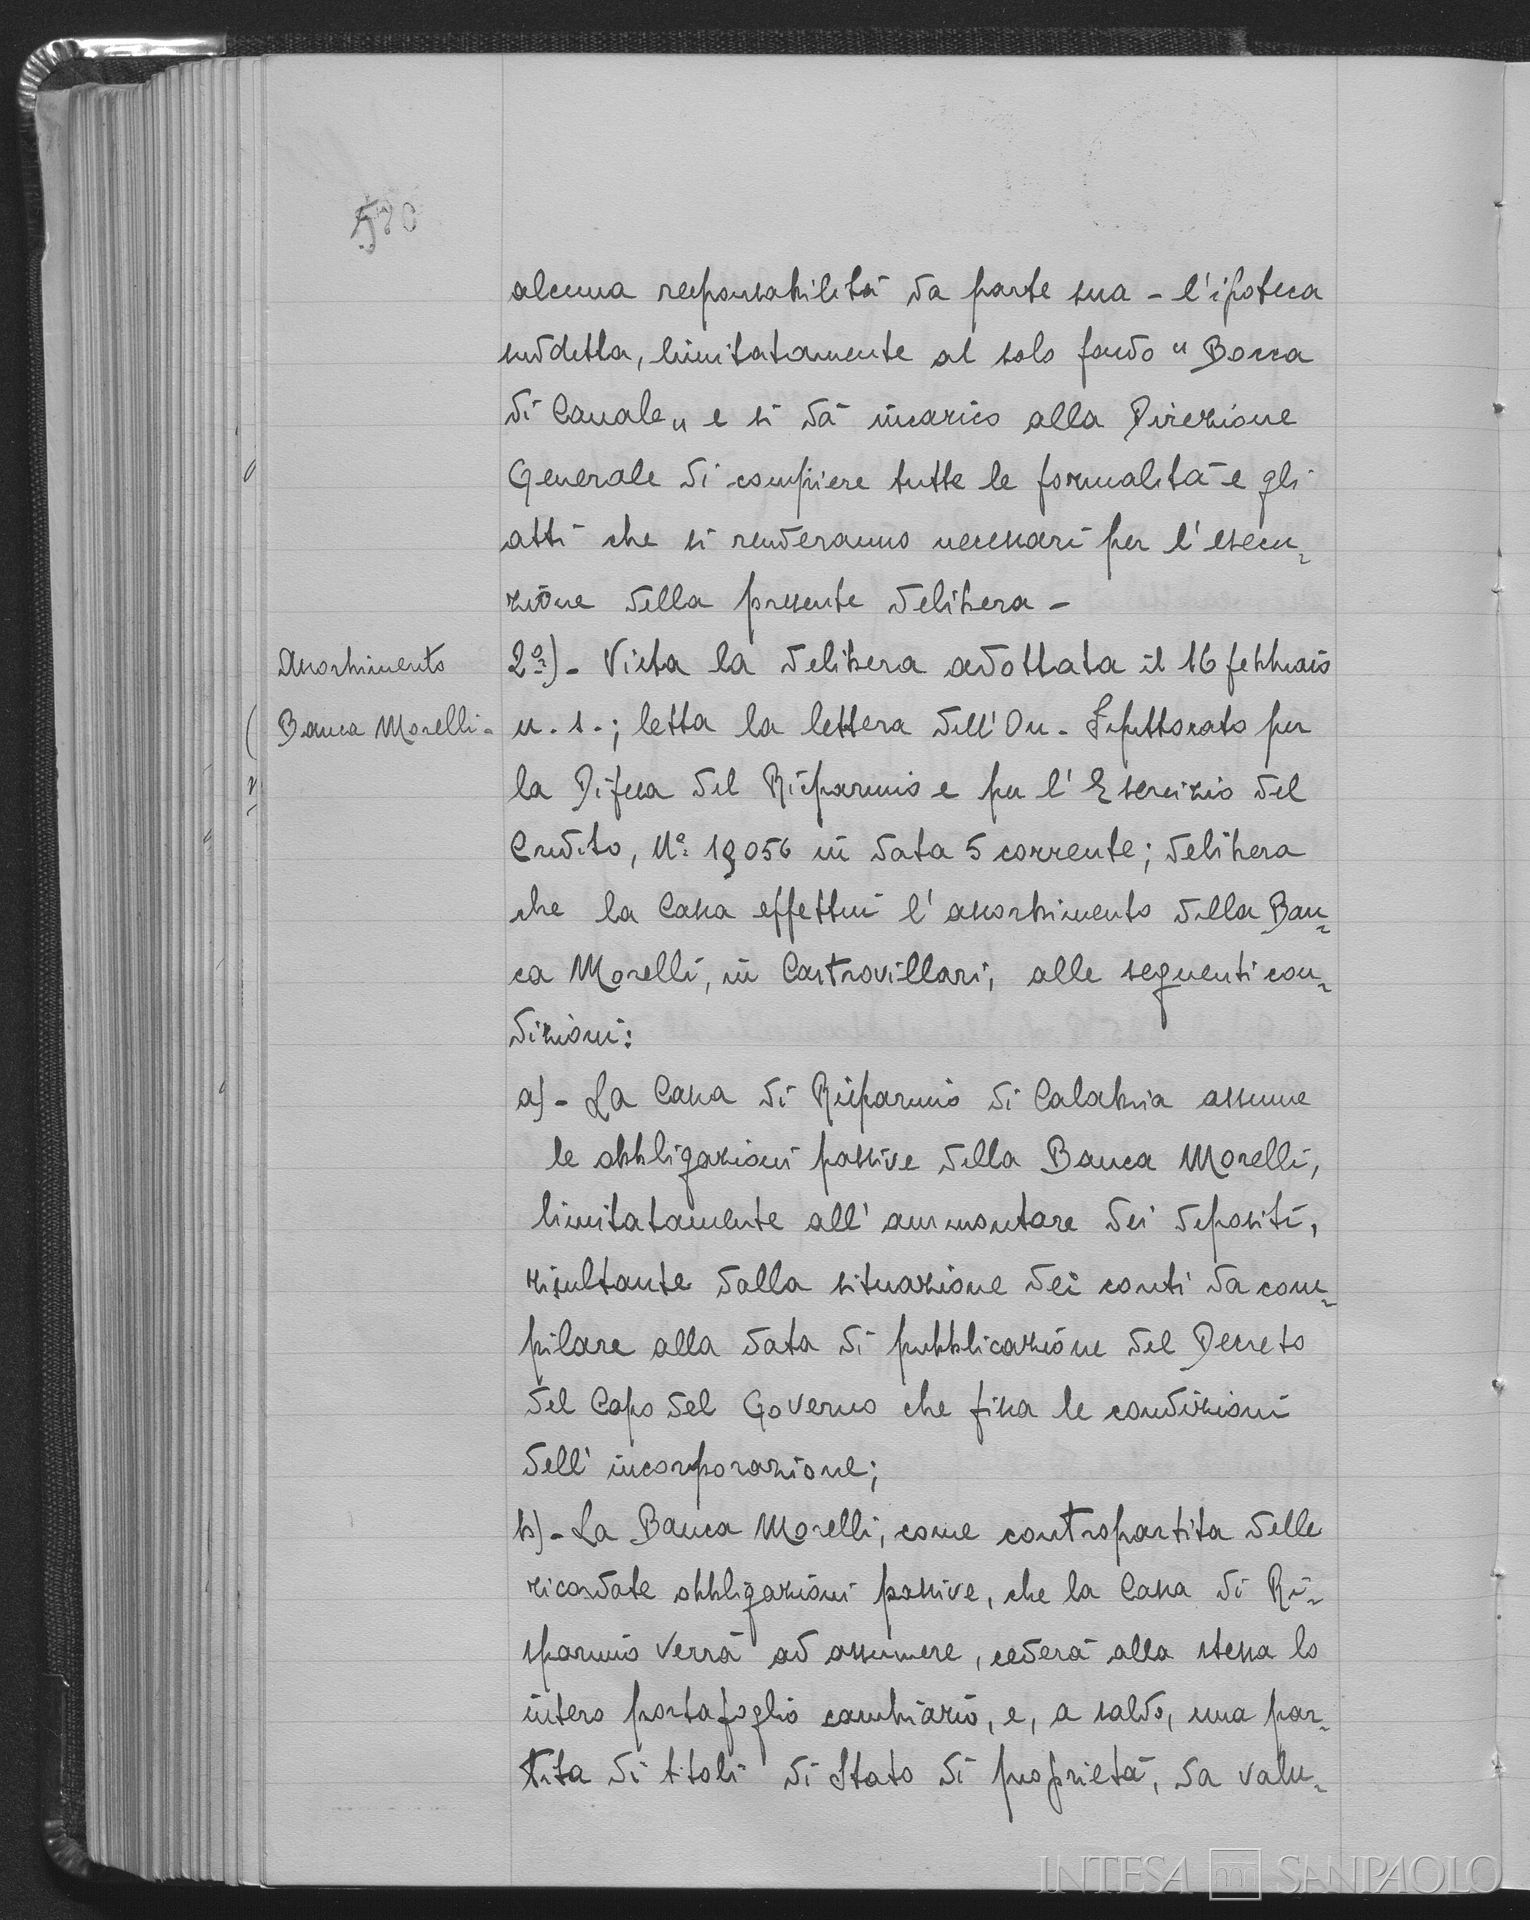 520
alcuna responsabilità da parte sua - l'ipoteca
suddetta, limitatamente al solo fondo "Bocca
di Canale" e si dà incarico alla Direzione
Generale di compiere tutte le formalità e gli
atti che si renderanno necessari per l'esecu-
zione della presente delibera -
Assorbimento
Banca Morelli -
2º) - Vista la delibera adottata il 16 febbraio
u. s.; letta la lettera dell'On. Ispettorato per
la Difesa del Risparmio e per l'Esercizio del
Credito, Nº 19056 in data 5 corrente; delibera
che la Cassa effettui l'assorbimento della Ban-
ca Morelli, in Castrovillari, alle seguenti con-
dizioni:
a) - La Cassa di Risparmio di Calabria assume
le obbligazioni passive della Banca Morelli,
limitatamente all'ammontare dei depositi,
risultante dalla situazione dei conti da com-
pilare alla data di pubblicazione del Decreto
del Capo del Governo che fissa le condizioni
dell'incorporazione;
b) - La Banca Morelli, come contropartita delle
ricordate obbligazioni passive, che la Cassa di Ri-
sparmio verrà ad assumere, cederà alla stessa lo
intero portafoglio cambiario, e, a saldo, una par-
tita di titoli di Stato di proprietà, da valu-
INTESA SANPAOLO